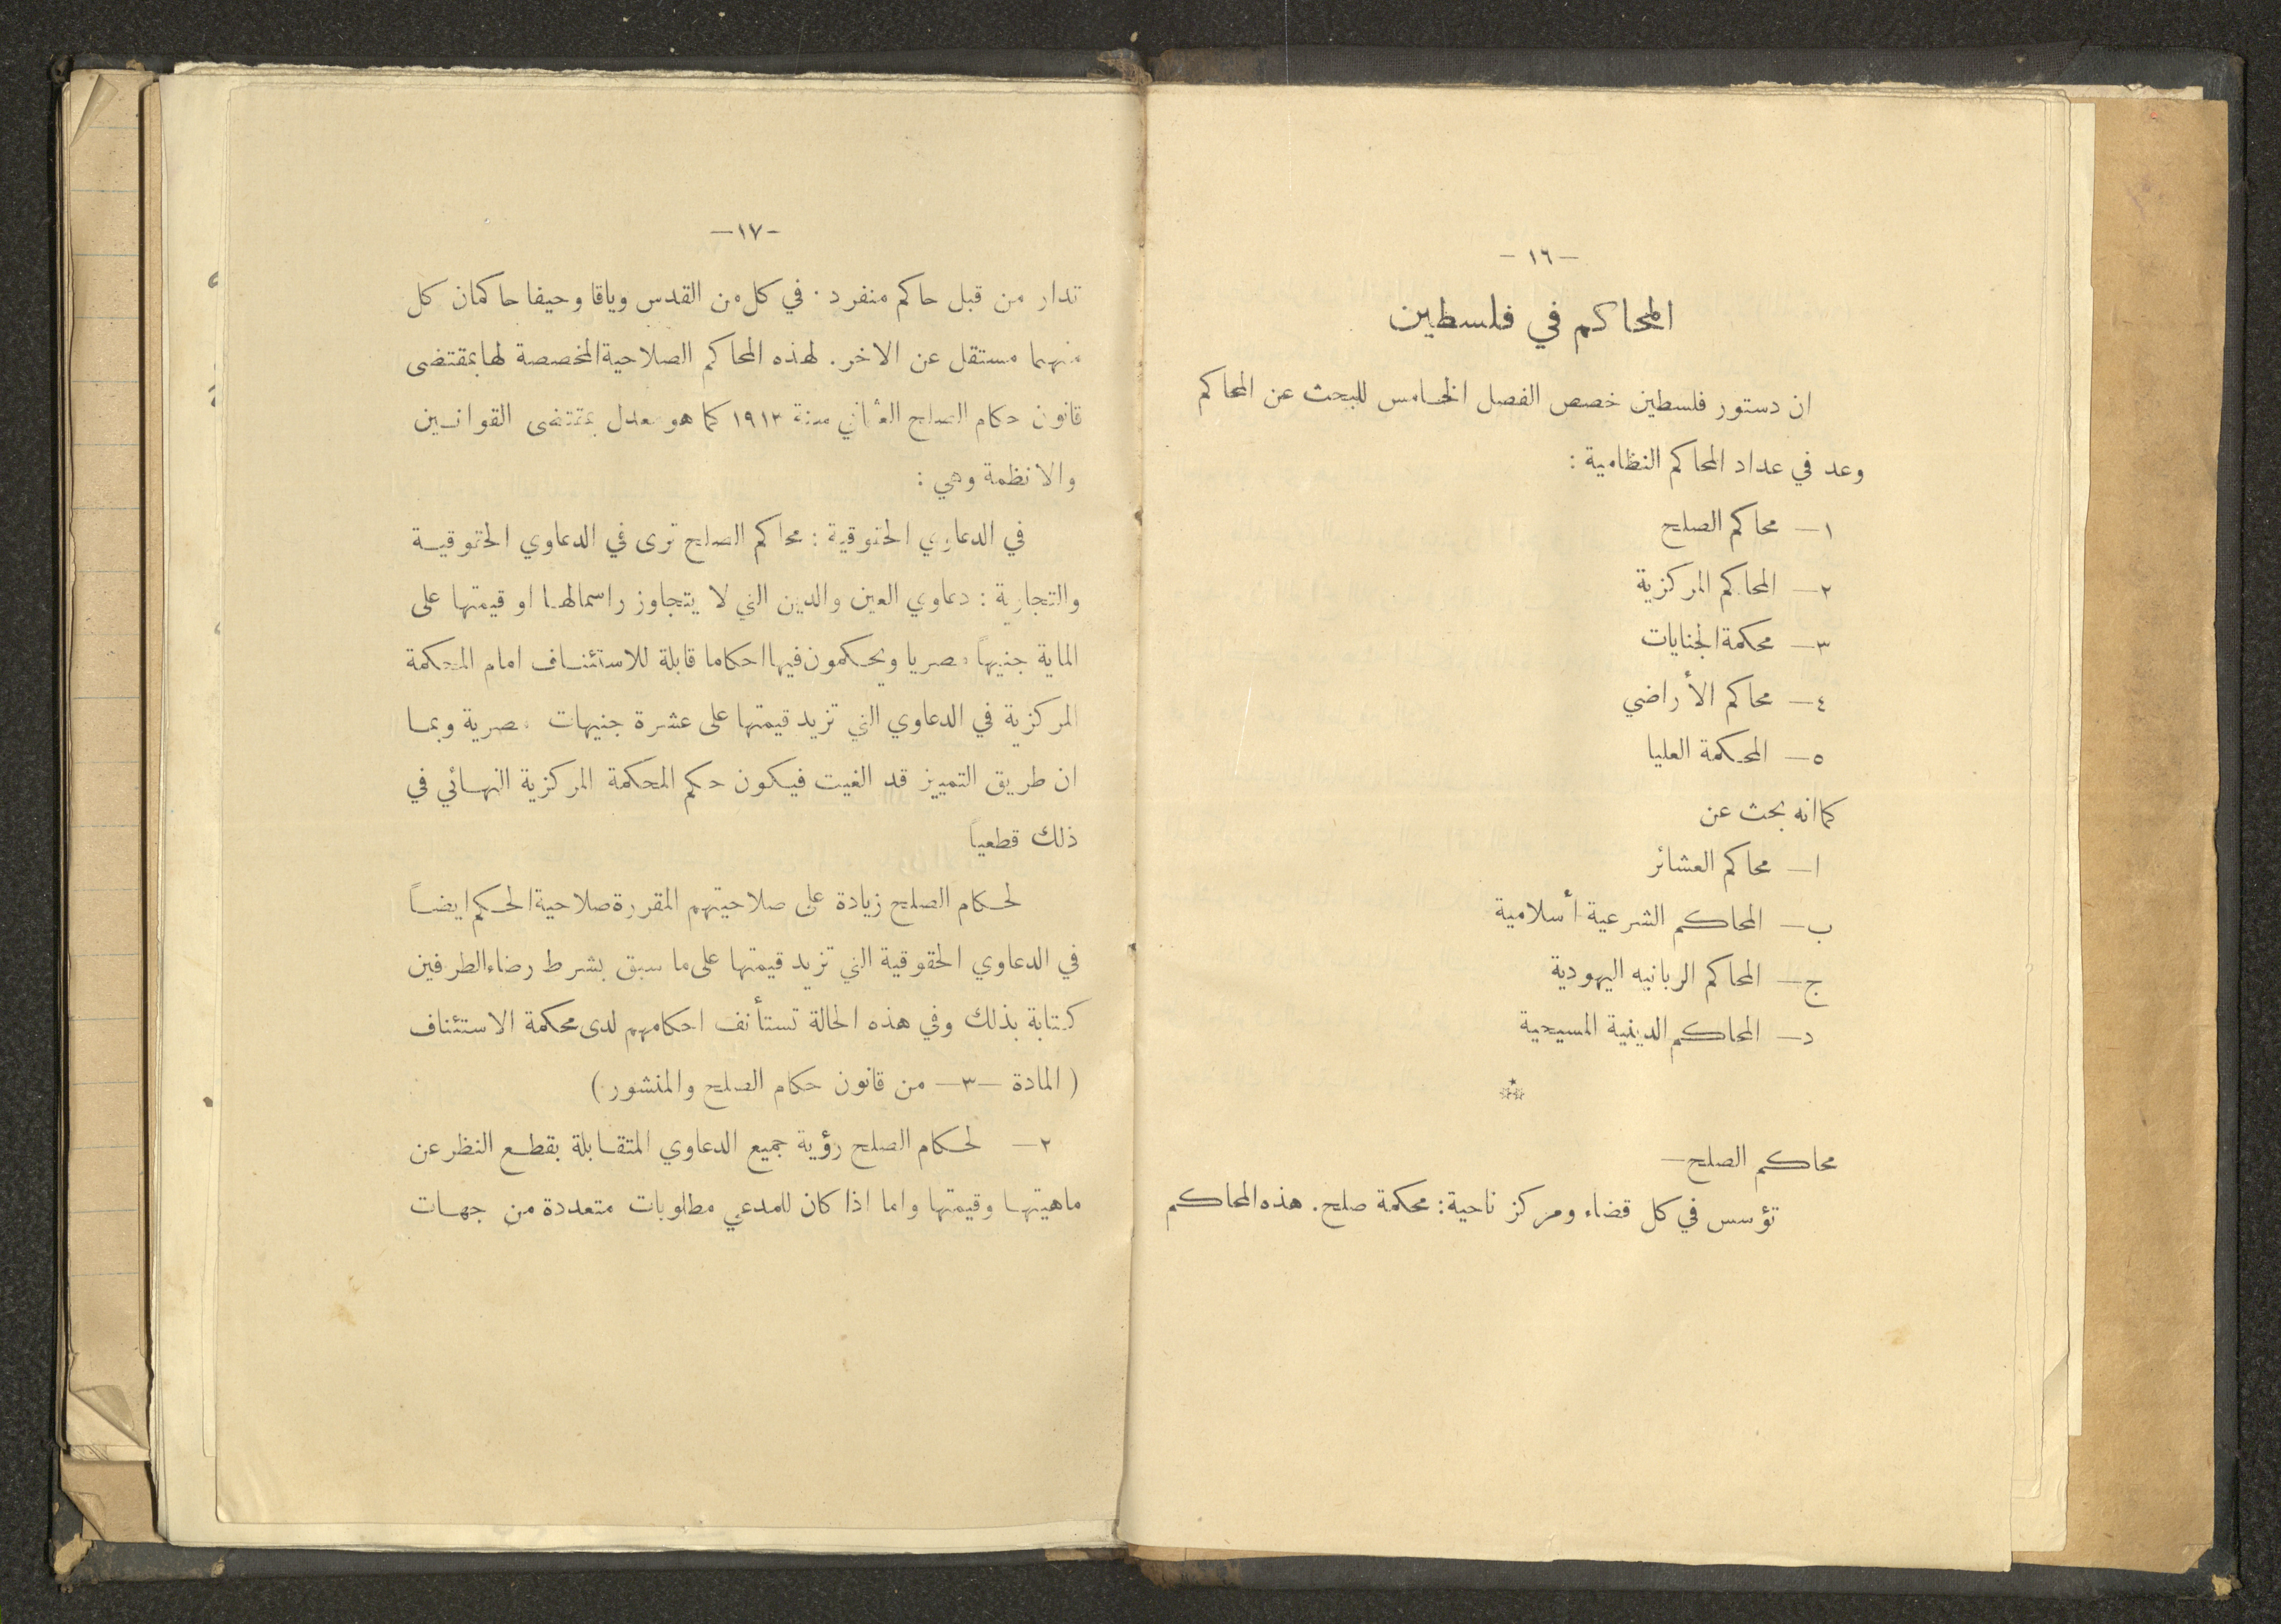 — ١٦ —
المحاكم في فلسطين
ان دستور فلسطين خصص الفصل الخامس للبحث عن المحاكم
وعد في عداد المحاكم النظامية :
١— محاكم الصلح
٢— المحاكم المركزية
٣— محكمة الجنايات
٤— محاكم الأراضي
٥— المحكمة العليا
كما انه بحث عن
ا— محاكم العشائر
ب— المحاكم الشرعية أسلامية
ج— المحاكم الربانيه اليهودية
د— المحاكم الدينية المسيحية
محاكم الصلح—
تؤسس في كل قضاء ومركز ناحية: محكمة صلح. هذه المحاكم
—١٧-
تدار من قبل حاكم منفرد . في كل من القدس ويافا وحيفا حاكمان كل
منهما مستقل عن الاخر. لهذه المحاكم الصلاحية المخصصة لها بمقتضى
قانون حكام الصلح العثماني سنة ١٩١٣ كما هو معدل بمقتضى القوانين
والانظمة وهي :
في الدعاوي الحقوقية : محاكم الصلح ترى في الدعاوي الحقوقية
والتجارية : دعاوي العين والدين التي لا يتجاوز راسمالها او قيمتها على
الماية جنيهاً مصريا ويحكمون فيها احكاما قابلة للاستئناف امام المحكمة
المركزية في الدعاوي التي تزيد قيمتها على عشرة جنيهات مصرية وبما
ان طريق التمييز قد الغيت فيكون حكم المحكمة المركزية النهائي في
ذلك قطعياً
لحكام الصلح زيادة على صلاحيتهم المقررة صلاحية الحكم ايضاً
في الدعاوي الحقوقية التي تزيد قيمتها على ما سبق بشرط رضاء الطرفين
كتابة بذلك وفي هذه الحالة تستأنف احكامهم لدى محكمة الاستئناف
( المادة —٣— من قانون حكام الصلح والمنشور )
٢— لحكام الصلح رؤية جميع الدعاوي المتقابلة بقطع النظر عن
ماهيتها وقيمتها واما اذا كان للمدعي مطلوبات متعددة من جهات